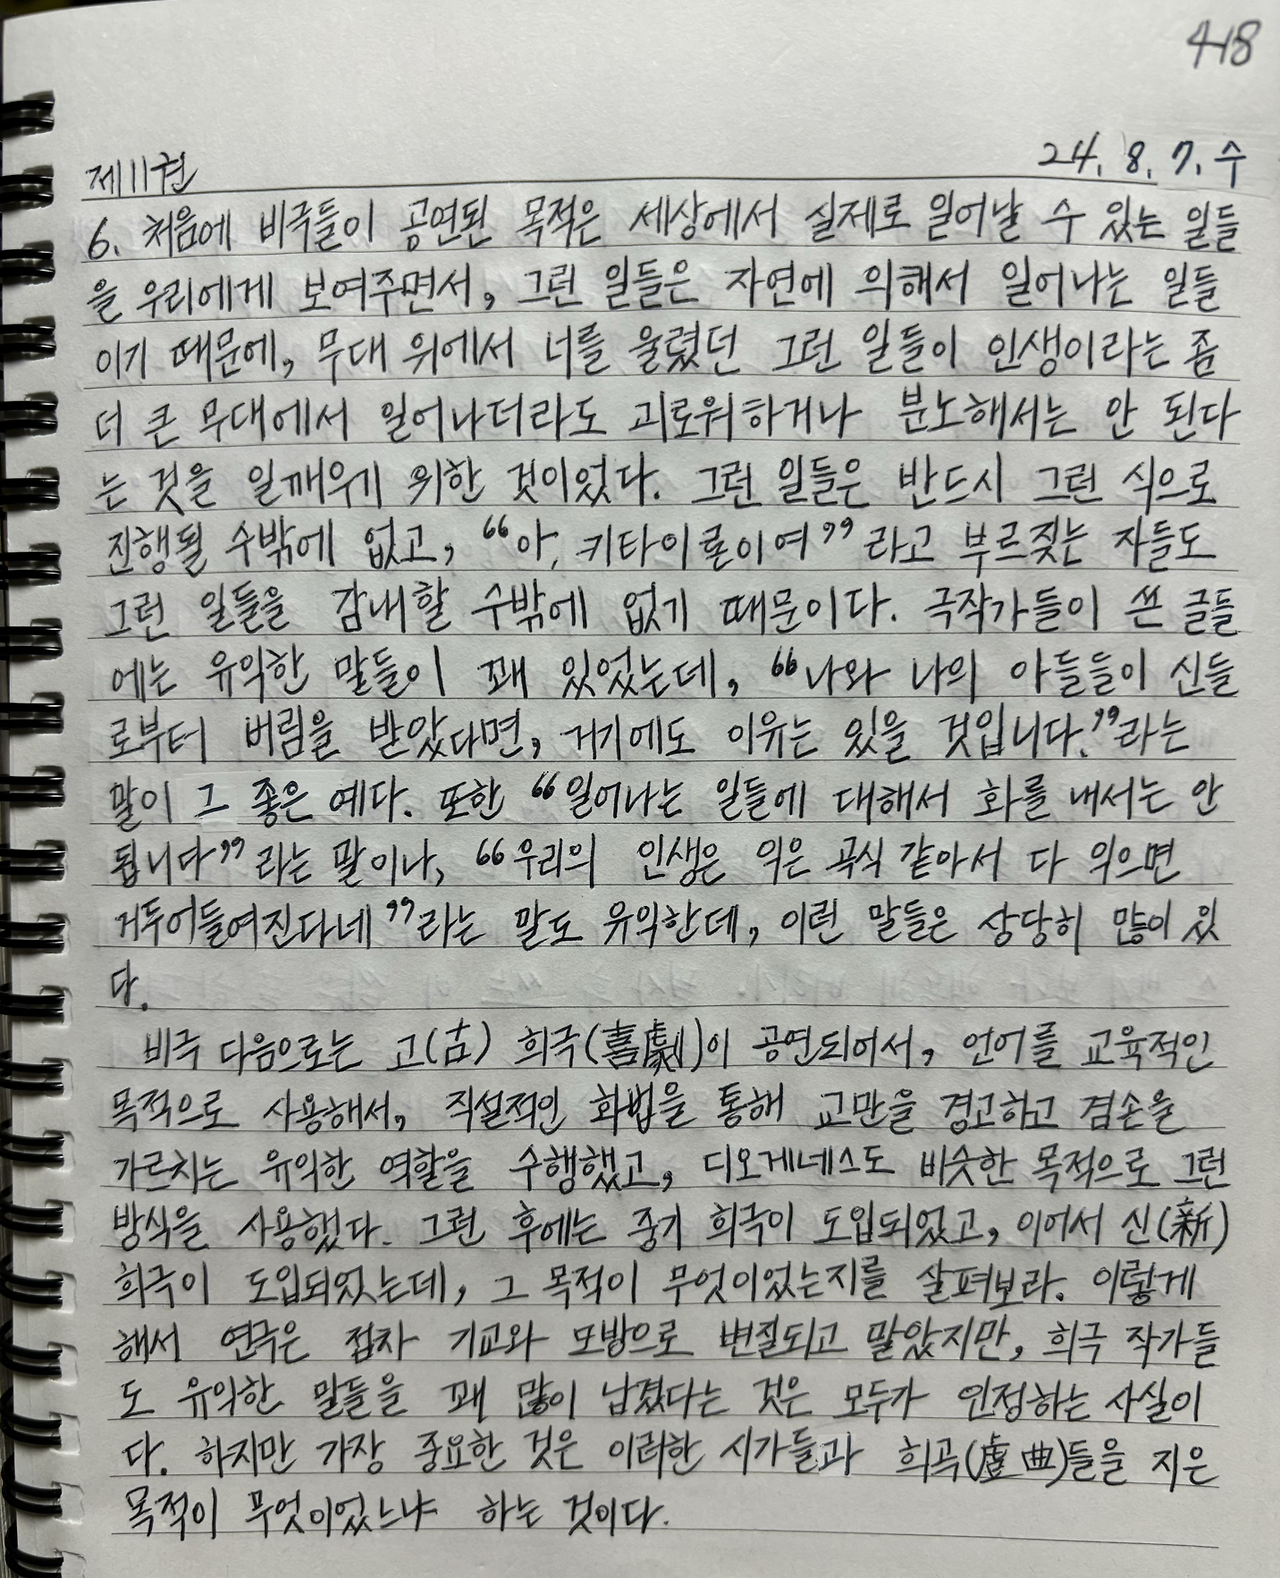 418
제11권 24. 8. 7. 수
6. 처음에 비극들이 공연된 목적은 세상에서 실제로 일어날 수 있는 일들
을 우리에게 보여주면서, 그런 일들은 자연에 의해서 일어나는 일들
이기 때문에, 무대 위에서 너를 울렸던 그런 일들이 인생이라는 좀
더 큰 무대에서 일어나더라도 괴로워하거나 분노해서는 안 된다
는 것을 일깨우기 위한 것이었다. 그런 일들은 반드시 그런 식으로
진행될 수밖에 없고, “아, 키타이론이여”라고 부르짖는 자들도
그런 일들을 감내할 수밖에 없기 때문이다. 극작가들이 쓴 글들
에는 유익한 말들이 꽤 있었는데, “나와 나의 아들들이 신들
로부터 버림을 받았다면, 거기에도 이유는 있을 것입니다.”라는
말이 그 좋은 예다. 또한 “일어나는 일들에 대해서 화를 내서는 안
됩니다”라는 말이나, “우리의 인생은 익은 곡식 같아서 다 익으면
거두어들여진다네”라는 말도 유익한데, 이런 말들은 상당히 많이 있
다.
비극 다음으로는 고(古) 희극(喜劇)이 공연되어서, 언어를 교육적인
목적으로 사용해서, 직설적인 화법을 통해 교만을 경고하고 겸손을
가르치는 유익한 역할을 수행했고, 디오게네스도 비슷한 목적으로 그런
방식을 사용했다. 그런 후에는 중기 희극이 도입되었고, 이어서 신(新)
희극이 도입되었는데, 그 목적이 무엇이었는지를 살펴보라. 이렇게
해서 연극은 점차 기교와 모방으로 변질되고 말았지만, 희극 작가들
도 유익한 말들을 꽤 많이 남겼다는 것은 모두가 인정하는 사실이
다. 하지만 가장 중요한 것은 이러한 시가들과 희곡(虛曲)들을 지은
목적이 무엇이었느냐 하는 것이다.